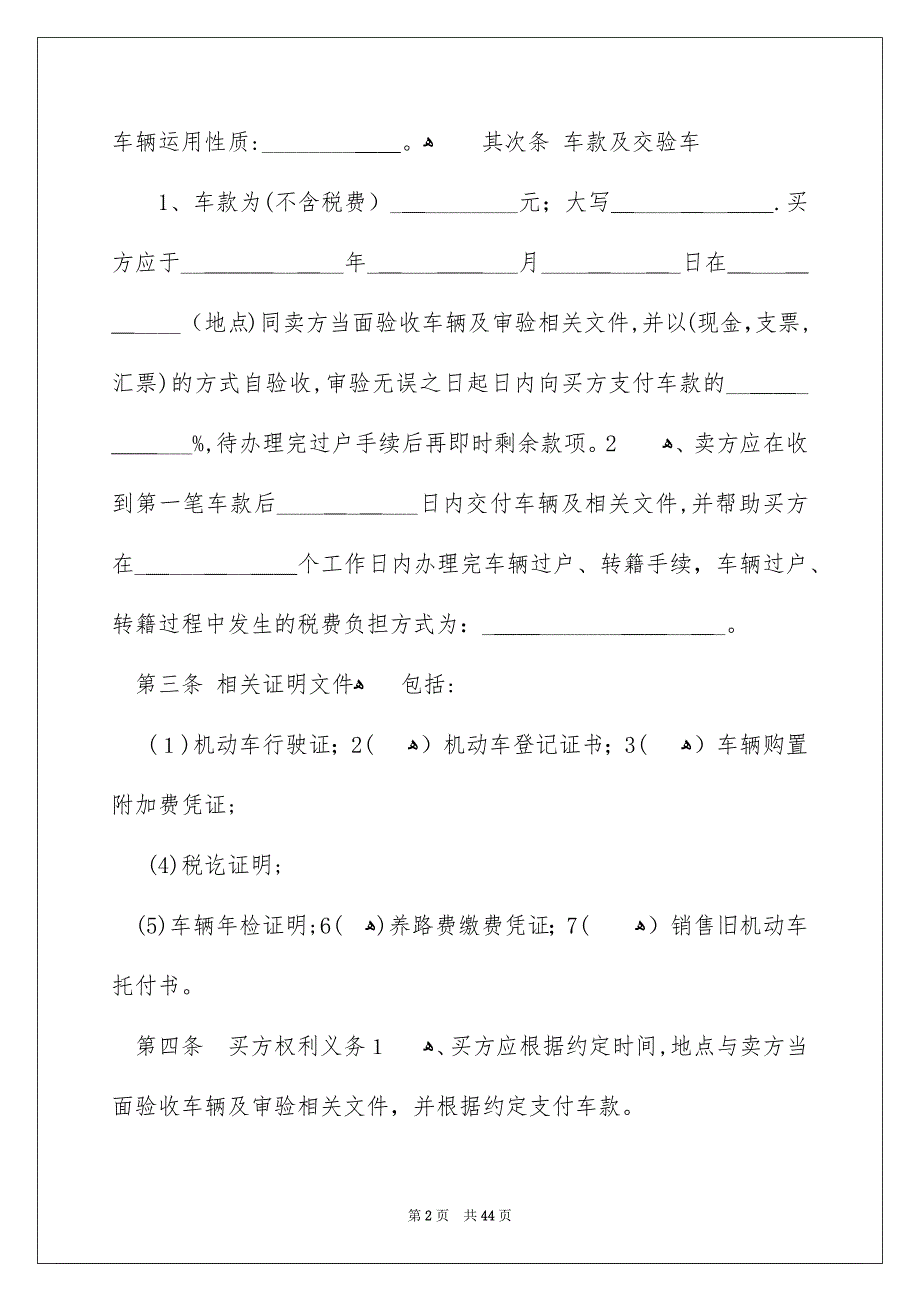 车辆运用性质:____________。ﻫ 其次条 车款及交验车
1、车款为(不含税费）___________元；大写______________.买
方应于______________年_____________月____________日在_______
______（地点)同卖方当面验收车辆及审验相关文件,并以(现金，支票,
汇票)的方式自验收,审验无误之日起日内向买方支付车款的_______
_______%,待办理完过户手续后再即时剩余款项。2ﻫ、卖方应在收
到第一笔车款后____________日内交付车辆及相关文件,并帮助买方
在______________个工作日内办理完车辆过户、转籍手续，车辆过户、
转籍过程中发生的税费负担方式为：_____________________。
第三条 相关证明文件ﻫ 包括:
(１)机动车行驶证；2(ﻫ）机动车登记证书；3(ﻫ）车辆购置
附加费凭证;
(4)税讫证明;
(5)车辆年检证明;6(ﻫ)养路费缴费凭证；7(ﻫ）销售旧机动车
托付书。
第四条 买方权利义务1ﻫ、买方应根据约定时间,地点与卖方当
面验收车辆及审验相关文件，并根据约定支付车款。
第 2 页 共 44 页